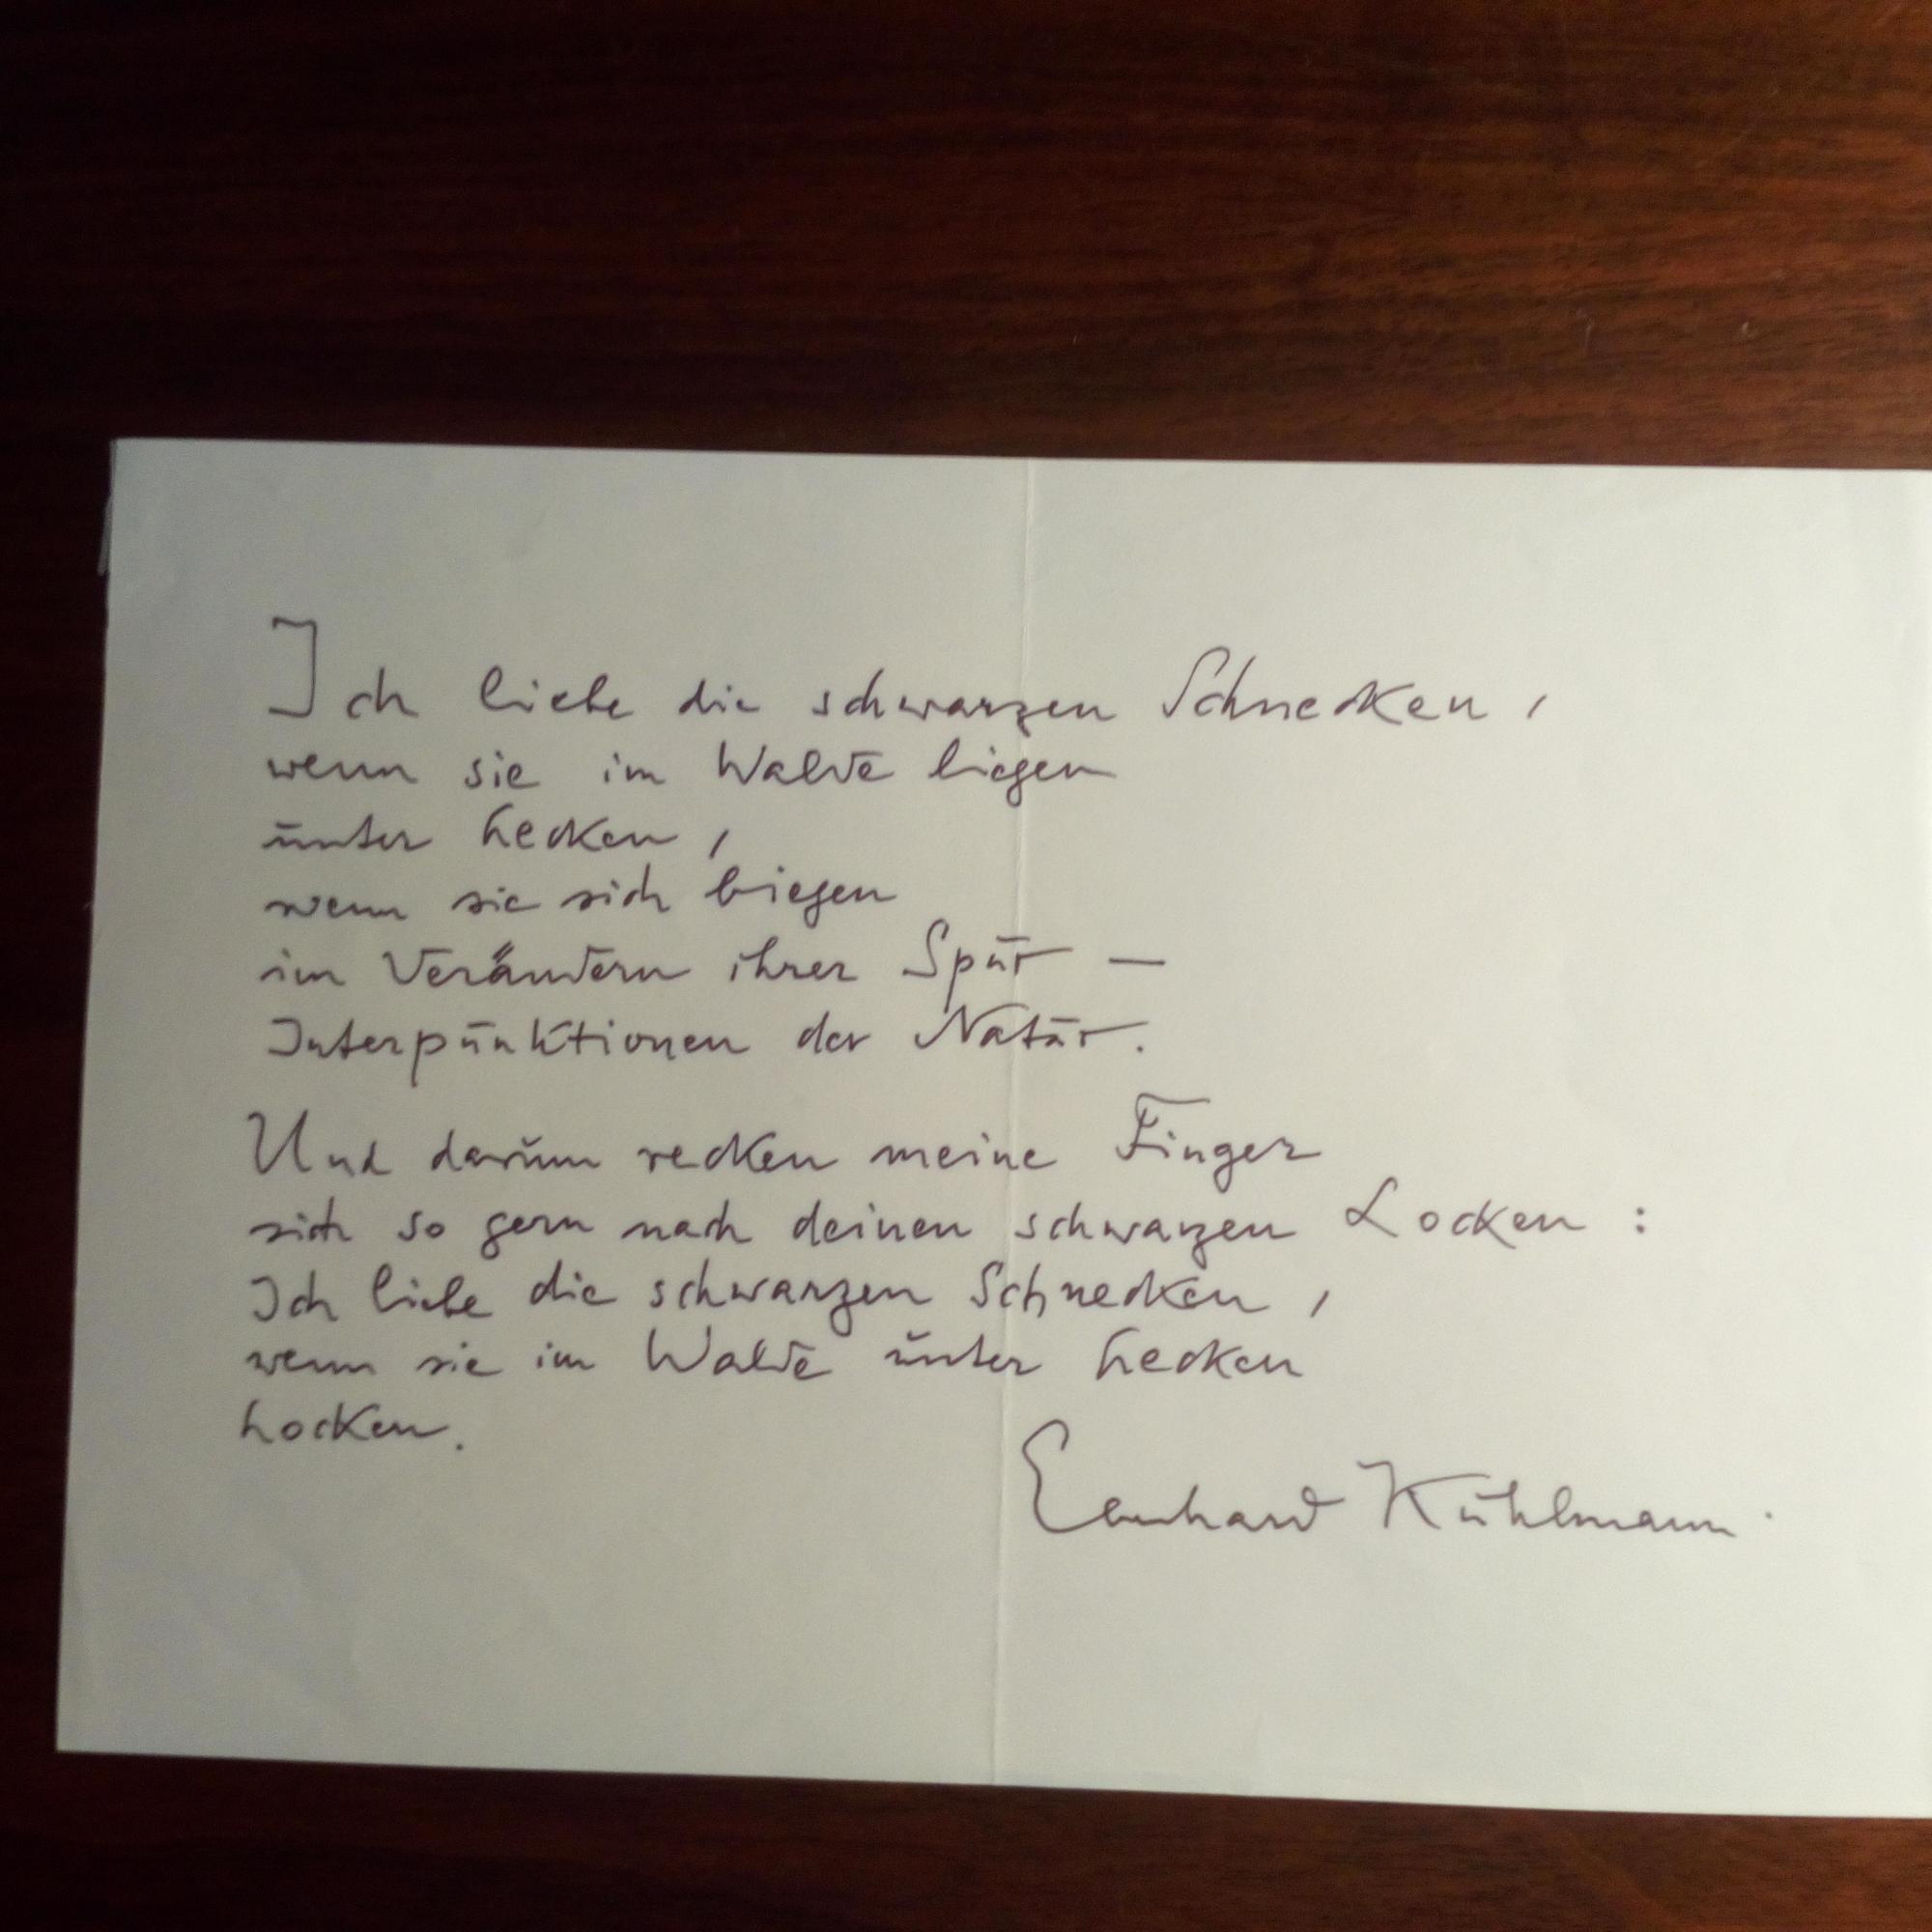 Ich liebe die schwarzen Schnecken,
wenn sie im Walde liegen
unter Hecken,
wenn sie sich biegen
im Verändern ihrer Spur —
Interpunktionen der Natur.
Und darum recken meine Finger
sich so gern nach deinen schwarzen Locken:
Ich liebe die schwarzen Schnecken,
wenn sie im Walde unter Hecken
hocken.
Eberhard Kühlmann.